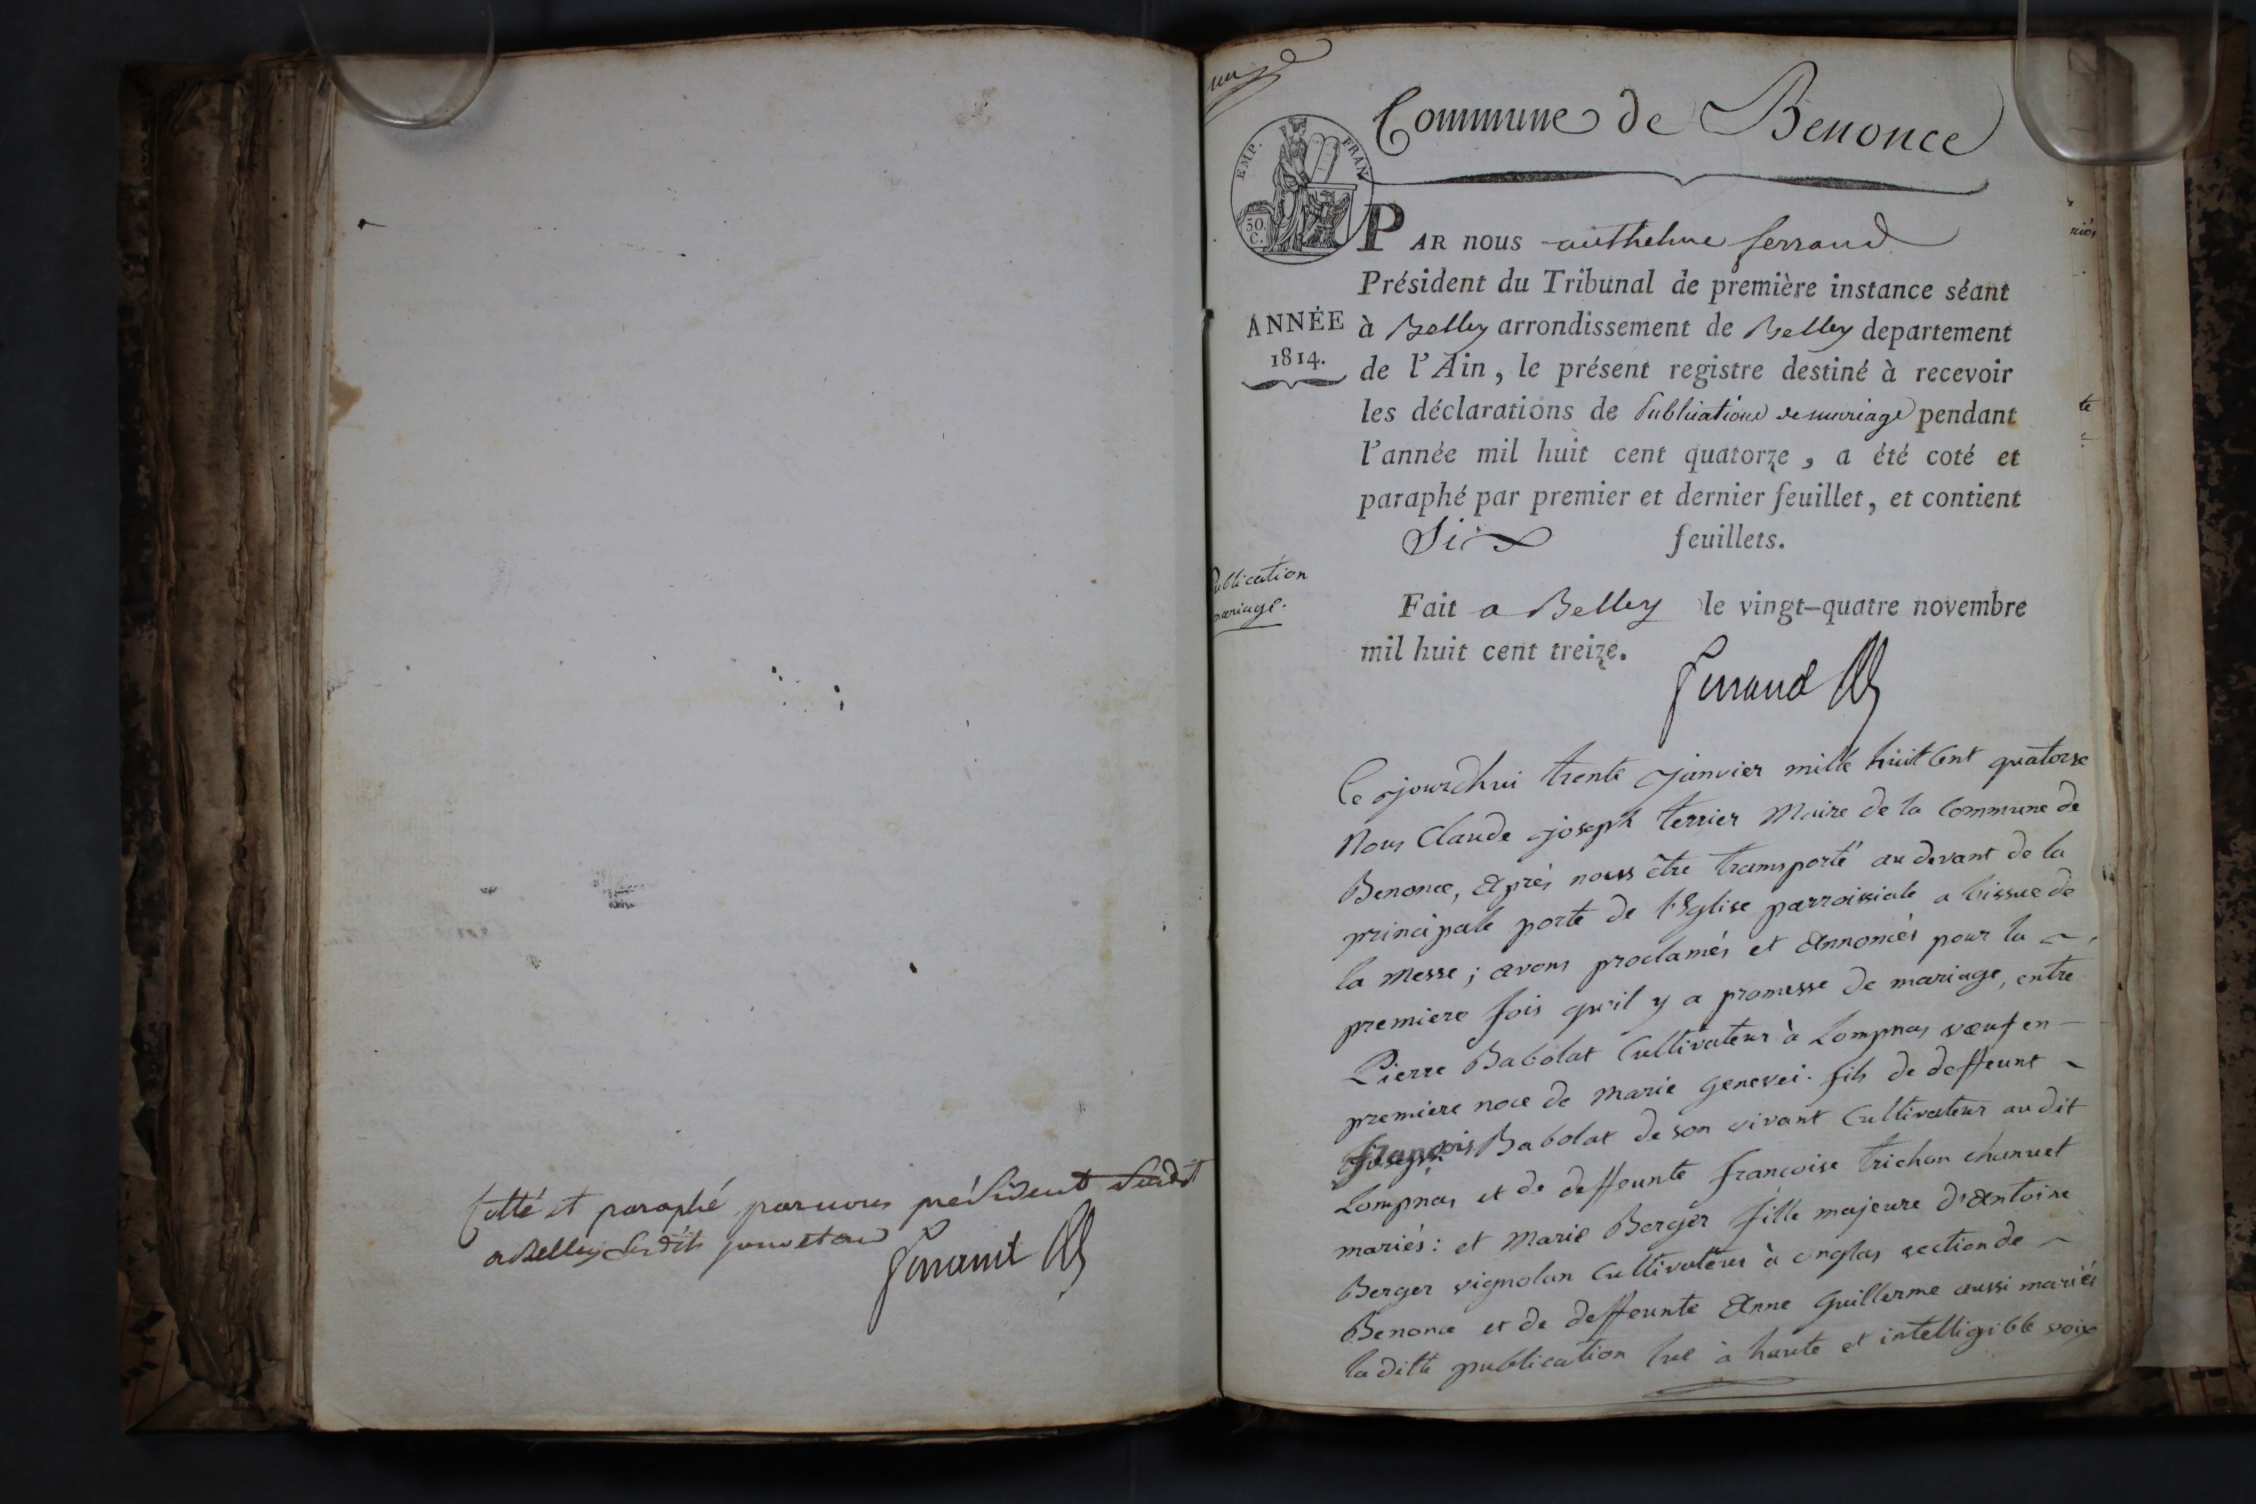 Cotté et paraphé par nous président susdit
a Belley lesdits jour et an
Ferrand
une
Commune de Benonce
EMP. FRAN
50.
C.
PAR nous anthelme ferrand
Président du Tribunal de première instance séant
ANNÉE
1814.
à Belley arrondissement de Belley departement
de l'Ain, le présent registre destiné à recevoir
les déclarations de Publications de mariage pendant
l'année mil huit cent quatorze, a été coté et
paraphé par premier et dernier feuillet, et contient
Six feuillets.
Publication
mariage.
Fait a Belley le vingt-quatre novembre
mil huit cent treize.
Ferrand
Ce ajourdhui trente janvier mille huit Cent quatorze
Nous Claude joseph terrier Maire de la Commune de
Benonce, après nous être transporté au devant de la
principale porte de l'Eglise parroissiale a lissue de
la Messe; avons proclamés et Annoncés pour la
premiere fois qu'il y a promesse de mariage, entre
Pierre Babolat Cultivateur à Lompnas vœuf en
premiere noce de Marie Genevei. fils de deffeunt
françois Babolat de son vivant Cultivateur au dit
Lompnas et de deffeunte françoise trichon chanuet
mariés: et Marie Berger fille majeure d'Antoine
Berger vignolan Cultivateur à onglas section de
Benonce et de deffeunte Anne Guillerme aussi mariés
la ditte publication lue à haute et intelligible voix